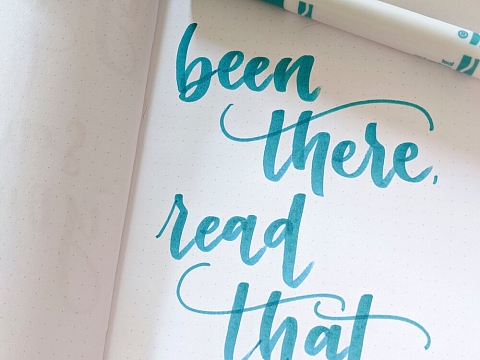 been
there,
read
that